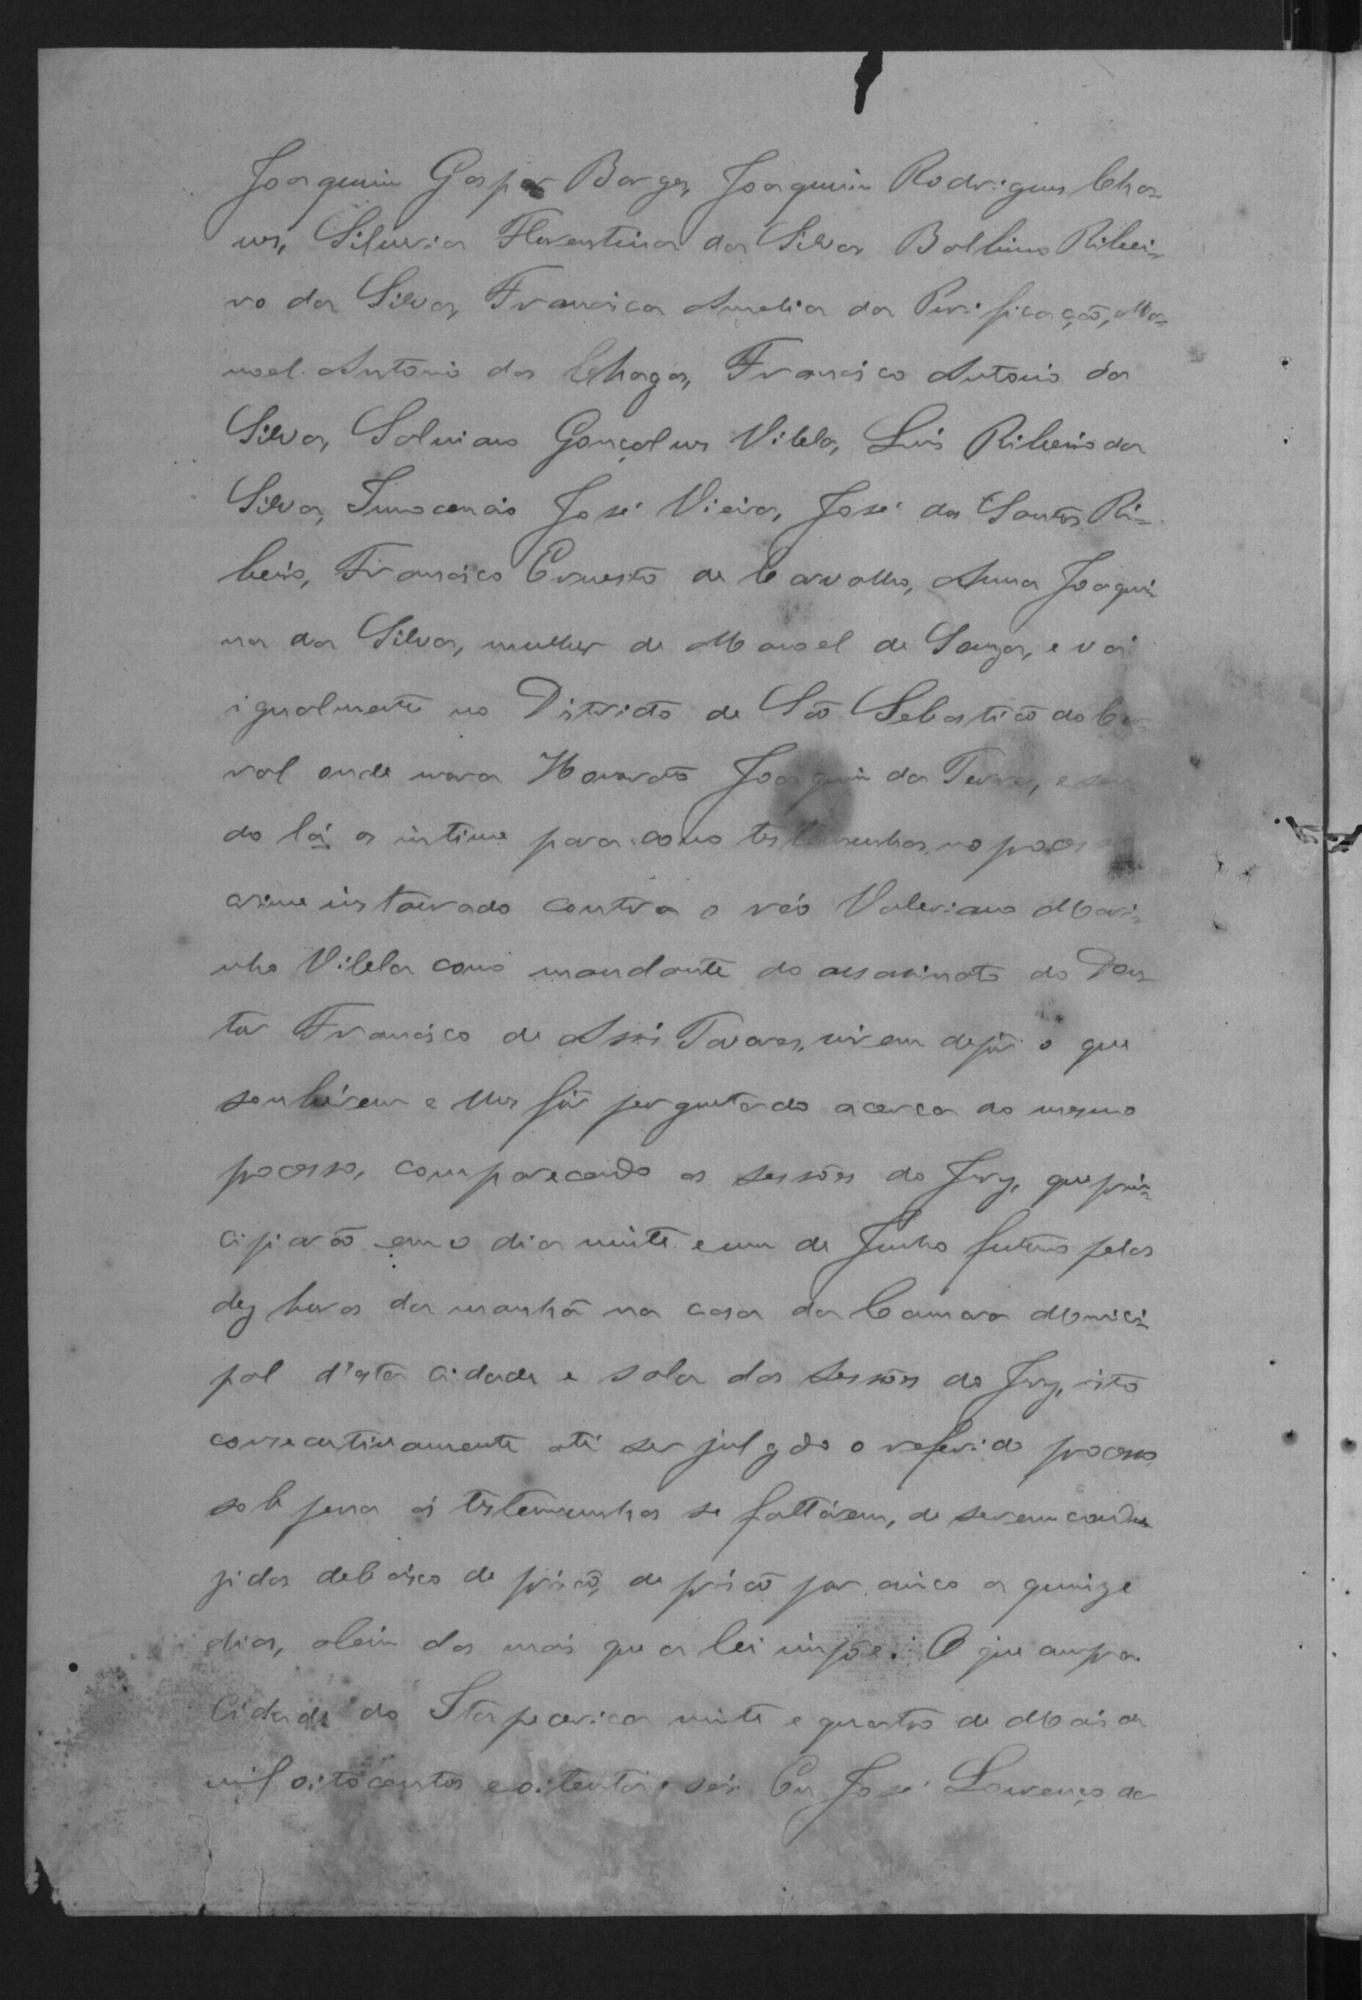 Joaquim Gaspar Borges, Joaquim Rodrigues Cha-
ves, Silveria Florentina da Silva, Balbino Ribei-
ro da Silva, Francisca Amelia da Purificação, Ma-
noel Antonio das Chagas, Francisco Antonio da
Silva, Salviano Gonçalves Vilela, Luis Ribeiro da
Silva, Innocencio José Vieira, José dos Santos Ri-
beiro, Francisco Ernesto de Carvalho, Anna Joaqui-
na da Silva, mulher de Manoel de Souza, e vá
igualmente no Districto de São Sebastião do
val onde mora Honorato Joaquim da Terra, e sen
do lá os intime para como testemunhas no processo
crime instaurado contra o réo Valeriano Mari-
nho Vilela como mandante do assassinato do Dou-
tor Francisco de Assis Tavares, virem depôr o que
souberem e lhes fôr perguntado acerca do mesmo
processo, comparecendo as sessões do Jury, que prin-
cipiarão em o dia vinte e um de Junho futuro pelas
dez horas da manhã na casa da Camara Munici-
pal d'esta cidade e sala das sessões do Jury, isto
consecutivamente até ser julgado o referido processo
sob pena ás testemunhas se faltarem, de serem condu
zidas debaixo de prisão, de prisão por cinco a quinze
dias, alem das mais que a lei impõe. O que cumpra.
Cidade do Itapecerica vinte e quatro de Maio de
mil oitocentos e oitenta e seis. Eu José Lourenço de